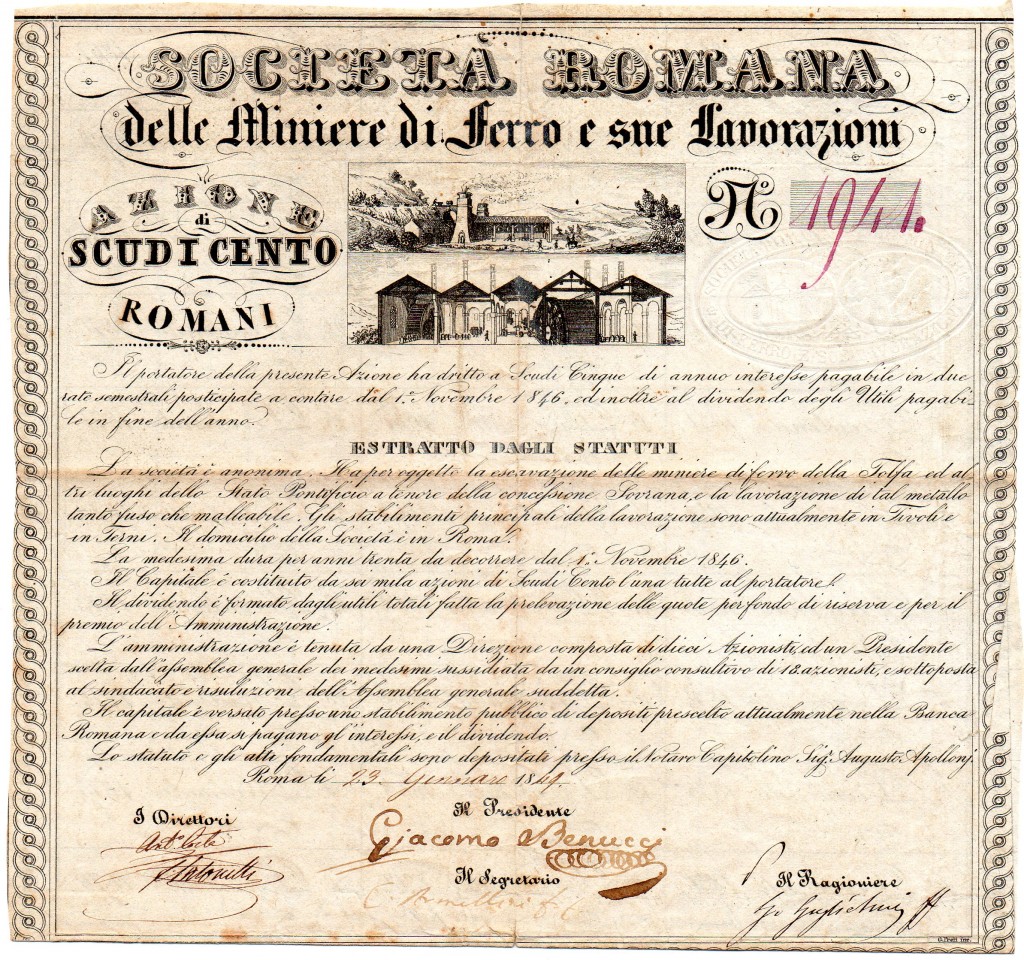 SOCIETÀ ROMANA
delle Miniere di Ferro e sue Lavorazioni
AZIONE
di
SCUDI CENTO
ROMANI
N.º 1941.
Il portatore della presente Azione ha dritto a Scudi Cinque di annuo interesse pagabile in due
rate semestrali posticipate a contare dal 1.º Novembre 1846, ed inoltre al dividendo degli Utili pagabi-
le in fine dell'anno.
ESTRATTO DAGLI STATUTI
La società è anonima. Ha per oggetto la escavazione delle miniere di ferro della Tolfa ed al
tri luoghi dello Stato Pontificio a tenore della concessione Sovrana, e la lavorazione di tal metallo
tanto fuso che malleabile. Gli stabilimenti principali della lavorazione sono attualmente in Tivoli e
in Terni. Il domicilio della Società è in Roma.
La medesima dura per anni trenta da decorrere dal 1.º Novembre 1846.
Il Capitale è costituito da sei mila azioni di Scudi Cento l'una tutte al portatore.
Il dividendo è formato dagli utili totali fatta la prelevazione delle quote per fondo di riserva e per il
premio dell'Amministrazione.
L'amministrazione è tenuta da una Direzione composta di dieci Azionisti, ed un Presidente
scelta dall'assemblea generale dei medesimi sussidiata da un consiglio consultivo di 18. azionisti, e sottoposta
al sindacato e risoluzioni dell'Assemblea generale suddetta.
Il capitale è versato presso uno stabilimento pubblico di depositi prescelto attualmente nella Banca
Romana e da essa si pagano gl'interessi, e il dividendo.
Lo statuto e gli atti fondamentali sono depositati presso il Notaro Capitolino Sig. Augusto Apollonj.
Roma li 23 Gennaro 1849.
I Direttori
Il Presidente
Giacomo Benucci
Antonelli
Il Segretario
Il Ragioniere